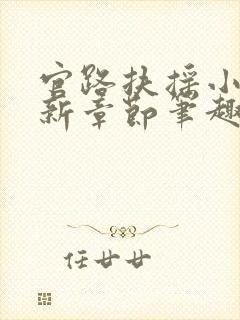 官路扶摇小
新章节笔趣
任廿廿